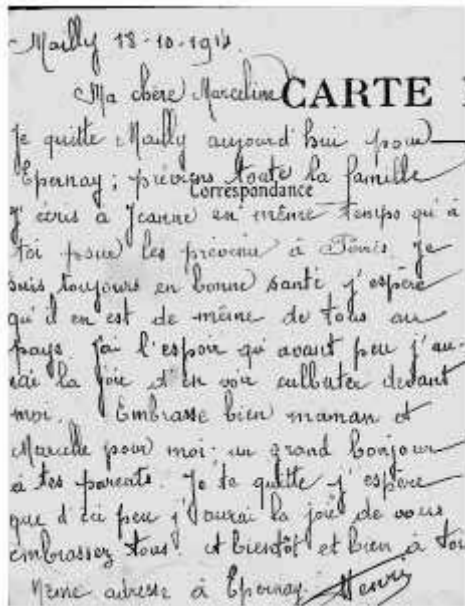 Mailly 18-10-191
Ma chère Marceline
CARTE
Je quitte Mailly aujourd'hui pour
Epernay; préviens toute la famille
Correspondance
J'écris à Jeanne en même temps qu'à
toi pour les prévenir à Je
suis toujours en bonne santé j'espère
qu'il en est de même de tous au
pays. J'ai l'espoir qu'avant peu j'au-
rai la joie d'en voir culbuter devant
moi. Embrasse bien maman et
Marcelle pour moi un grand bonjour
à tes parents. Je te quitte j'espère
que d'ici peu j'aurai la joie de vous
embrassez tous. et bientôt et bien à toi
Même adresse à Epernay. Henri